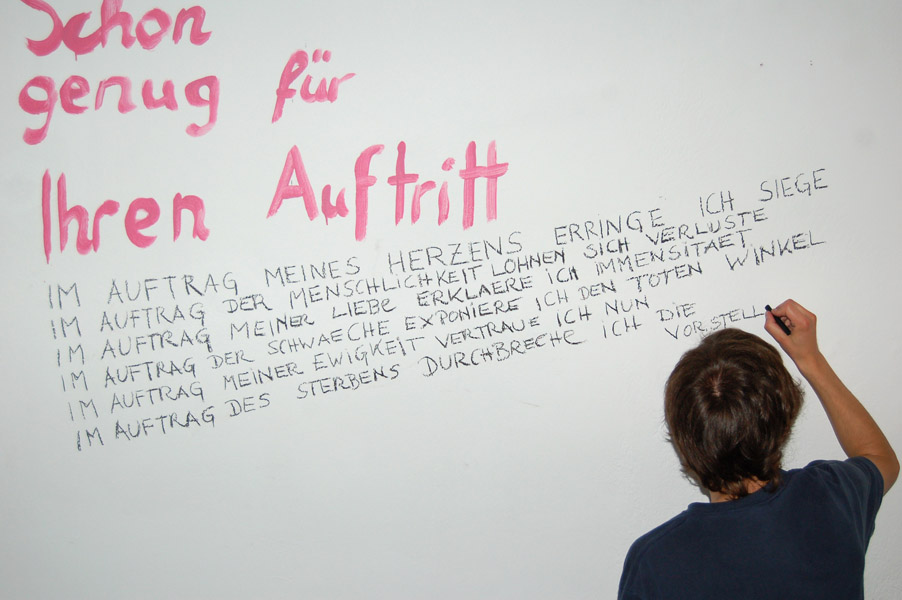 Schon
genug für
Ihren Auftritt
IM AUFTRAG MEINES HERZENS ERRINGE ICH SIEGE
IM AUFTRAG DER MENSCHLICHKEIT LOHNEN SICH VERLUSTE
IM AUFTRAG MEINER LIEBE ERKLAERE ICH IMMENSITAET
IM AUFTRAG DER SCHWAECHE EXPONIERE ICH DEN TOTEN WINKEL
IM AUFTRAG MEINER EWIGKEIT VERTRAUE ICH NUN
IM AUFTRAG DES STERBENS DURCHBRECHE ICH DIE
VORSTELL